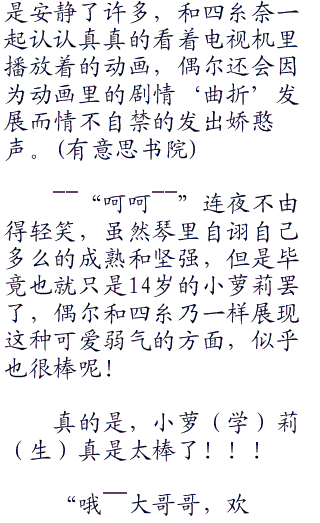 是安静了许多，和四糸奈一
起认认真真的看着电视机里
播放着的动画，偶尔还会因
为动画里的剧情‘曲折’发
展而情不自禁的发出娇憨
声。(有意思书院)
――“呵呵――”连夜不由
得轻笑，虽然琴里自诩自己
多么的成熟和坚强，但是毕
竟也就只是14岁的小萝莉罢
了，偶尔和四糸乃一样展现
这种可爱弱气的方面，似乎
也很棒呢！
真的是，小萝（学）莉
（生）真是太棒了！！！
“哦――大哥哥，欢